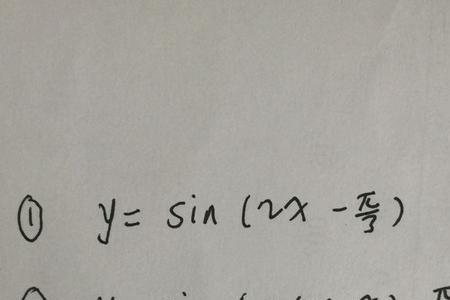 ① y = sin (2x - π/3)